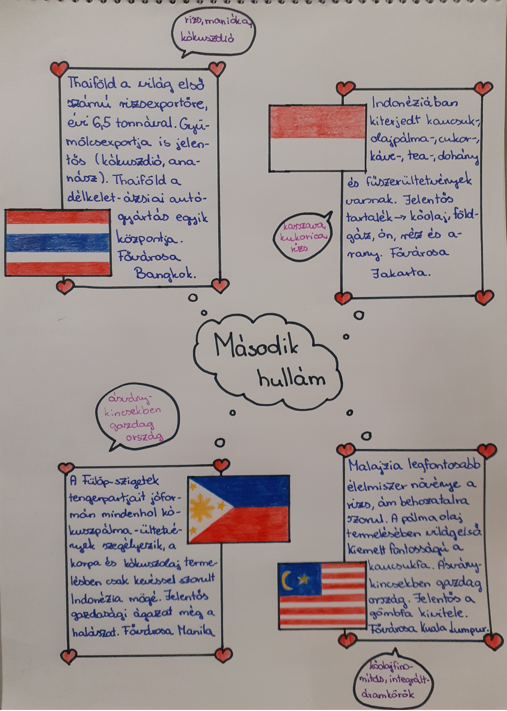 rizs, manióka,
kókuszdió
Thaiföld a világ első
számú rizsexportőre,
évi 6,5 tonnával. Gyü-
mölcsexportja is jelen-
tős (kókuszdió, ana-
nász). Thaiföld a
délkelet-ázsiai autó-
gyártás egyik
központja.
Fővárosa
Bangkok.
Indonéziában
kiterjedt kaucsuk-,
olajpálma-, cukor-,
kávé-, tea-, dohány
és fűszerültetvények
vannak. Jelentős
tartalék→ kőolaj, föld-
gáz, ón, réz és a-
rany. Fővárosa
Jakarta.
kasszava,
kukorica,
rizs
Második
hullám
ásvány-
kincsekben
gazdag
ország
A Fülöp-szigetek
tengerpartjait jófor-
mán mindenhol kó-
kuszpálma-ültetvé-
nyek szegélyezik, a
kopra és kókuszolaj terme-
lésben csak kevéssel szorult
Indonézia mögé. Jelentős
gazdasági ágazat még a
halászat. Fővárosa Manila
Malajzia legfontosabb
élelmiszer növénye a
rizs, ám behozatalra
szorul. A pálma olaj
termelésében világelső.
Kiemelt fontosságú a
kaucsukfa. Ásvány-
kincsekben gazdag
ország. Jelentős a
gömbfa kivitele.
Fővárosa Kuala Lumpur.
kőolajfino-
mítás, integrált-
áramkörök